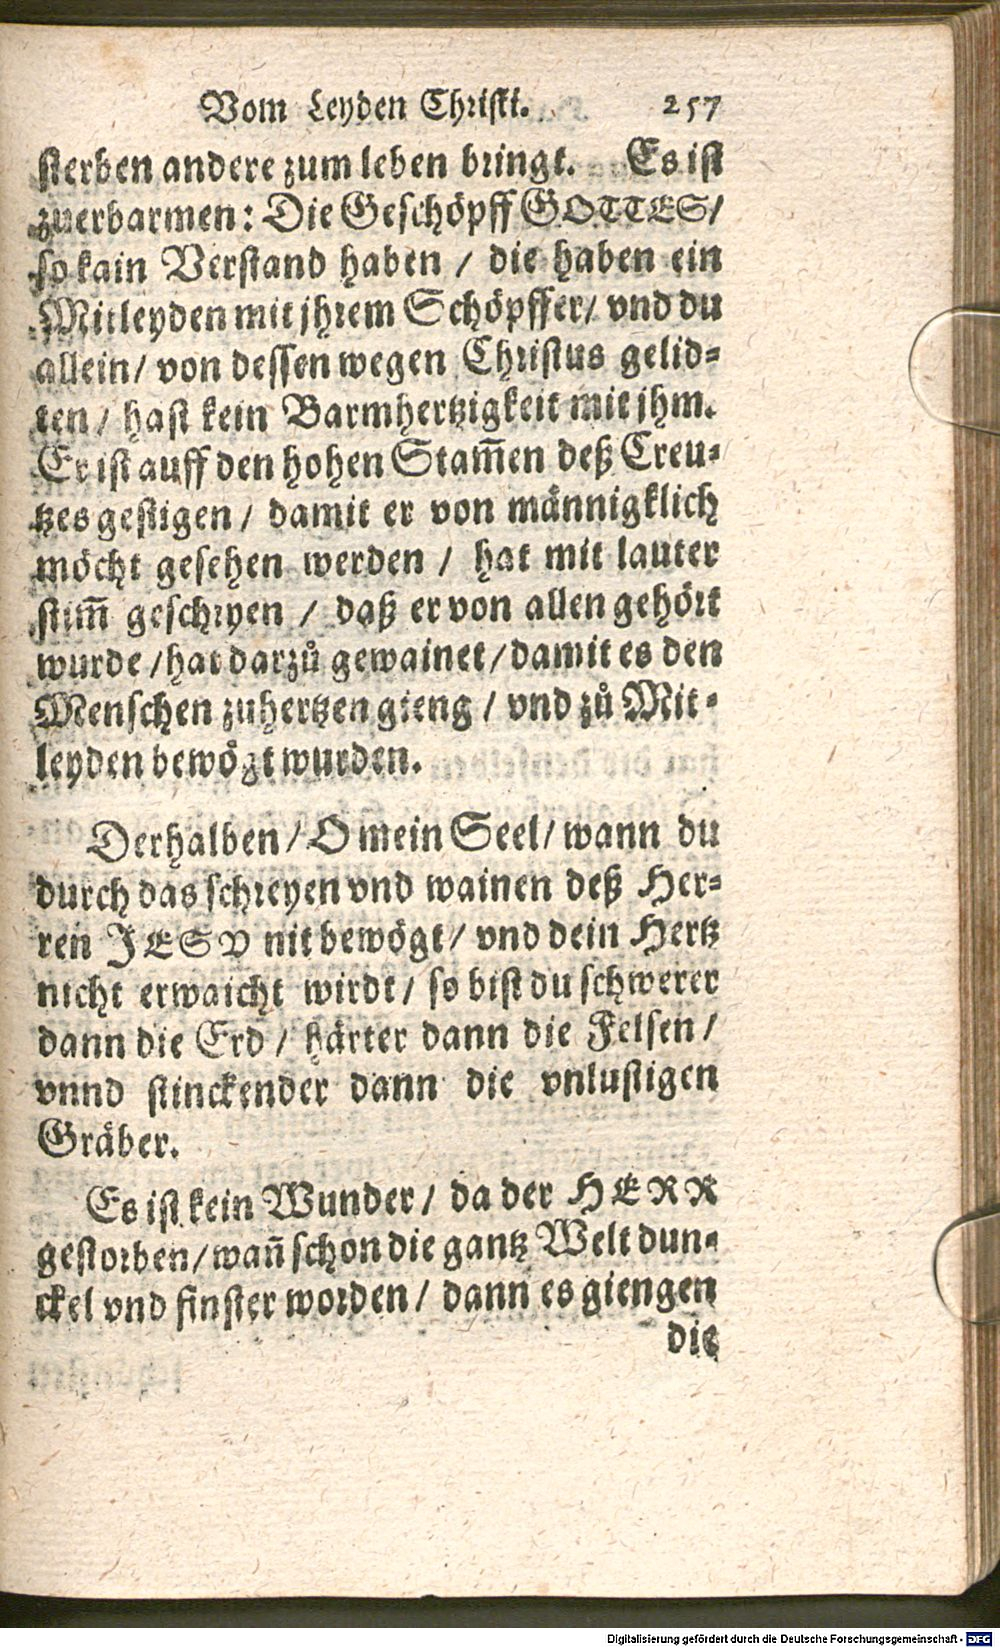 Vom Leyden Christi. 257
sterben andere zum leben bringt. Es ist
zuerbarmen: Die Geschöpff GOTTES/
so kain Verstand haben / die haben ein
Mitleyden mit jhrem Schöpffer/ vnd du
allein/ von dessen wegen Christus gelid-
ten / hast kein Barmhertzigkeit mit jhm.
Er ist auff den hohen Stam̅en deß Creu-
tzes gestigen / damit er von männigklich
möcht gesehen werden / hat mit lauter
stim̅ geschryen / daß er von allen gehört
wurde /hat darzů gewainet/damit es den
Menschen zuhertzen gieng / vnd zů Mit-
leyden bewögt wurden.
Derhalben/ O mein Seel/ wann du
durch das schreyen vnd wainen deß Her-
ren JESV nit bewögt/ vnd dein Hertz
nicht erwaicht wirdt/ so bist du schwerer
dann die Erd / härter dann die Felsen /
vnnd stinckender dann die vnlustigen
Gräber.
Es ist kein Wunder / da der HERR
gestorben/wan̅ schon die gantz Welt dun-
ckel vnd finster worden/ dann es giengen
die
Digitalisierung gefördert durch die Deutsche Forschungsgemeinschaft - DFG